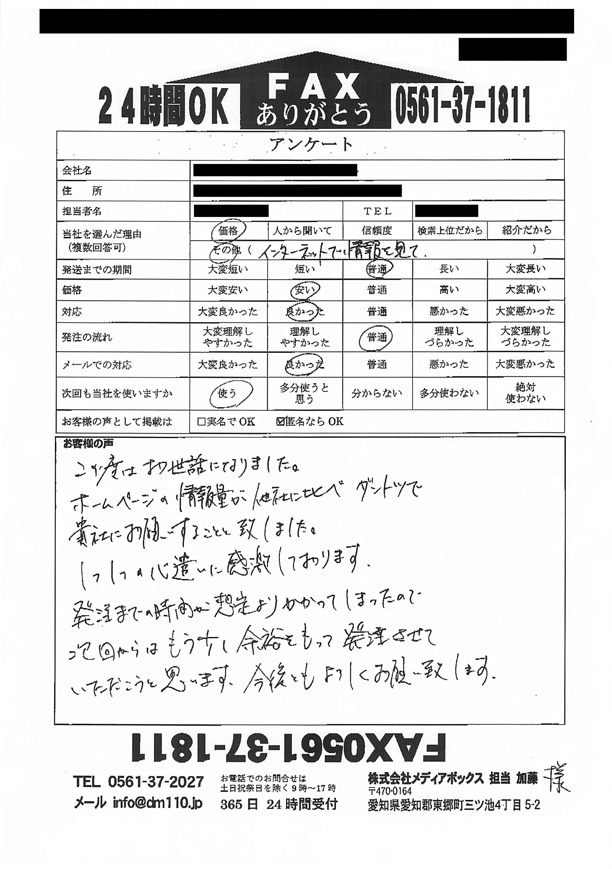 24時間OK FAX ありがとう 0561-37-1811
アンケート
会社名
住 所
担当者名 TEL
当社を選んだ理由 (複数回答可) 価格 人から聞いて 信頼度 検索上位だから 紹介だから
その他 ( インターネットで情報を見て。 )
発送までの期間 大変短い 短い 普通 長い 大変長い
価格 大変安い 安い 普通 高い 大変高い
対応 大変良かった 良かった 普通 悪かった 大変悪かった
発注の流れ 大変理解しやすかった 理解しやすかった 普通 理解しづらかった 大変理解しづらかった
メールでの対応 大変良かった 良かった 普通 悪かった 大変悪かった
次回も当社を使いますか 使う 多分使うと思う 分からない 多分使わない 絶対使わない
お客様の声として掲載は □実名でOK ☑匿名ならOK
お客様の声
この度はお世話になりました。
ホームページの情報量が他社に比べダントツで
貴社にお願いすることと致しました。
1つ1つの心遣いに感激しております。
発注までの時間が想定よりかかってしまったので
次回からはもう少し余裕をもって発注させて
いただこうと思います。今後ともよろしくお願い致します。
FAX0561-37-1811
TEL 0561-37-2027 お電話でのお問合せは 土日祝祭日を除く9時〜17時 株式会社メディアボックス 担当 加藤 様
メール info@dm110.jp 365日 24時間受付 〒470-0164
愛知県愛知郡東郷町三ツ池4丁目 5-2